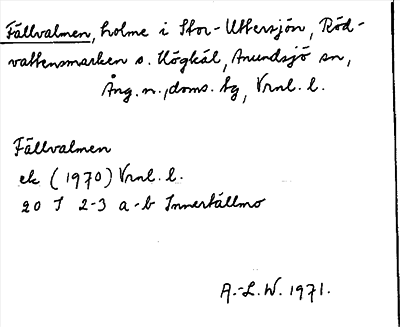 Fällvalmen, holme i Stor-Uttersjön, Röd-
vattensmarken s. Högkål, Anundsjö sn,
Ång. n., doms. tg, Vrnl. l.
Fällvalmen
ek (1970) Vrnl. l.
20 I 2-3 a-b Innertällmo
A.-L.W. 1971.